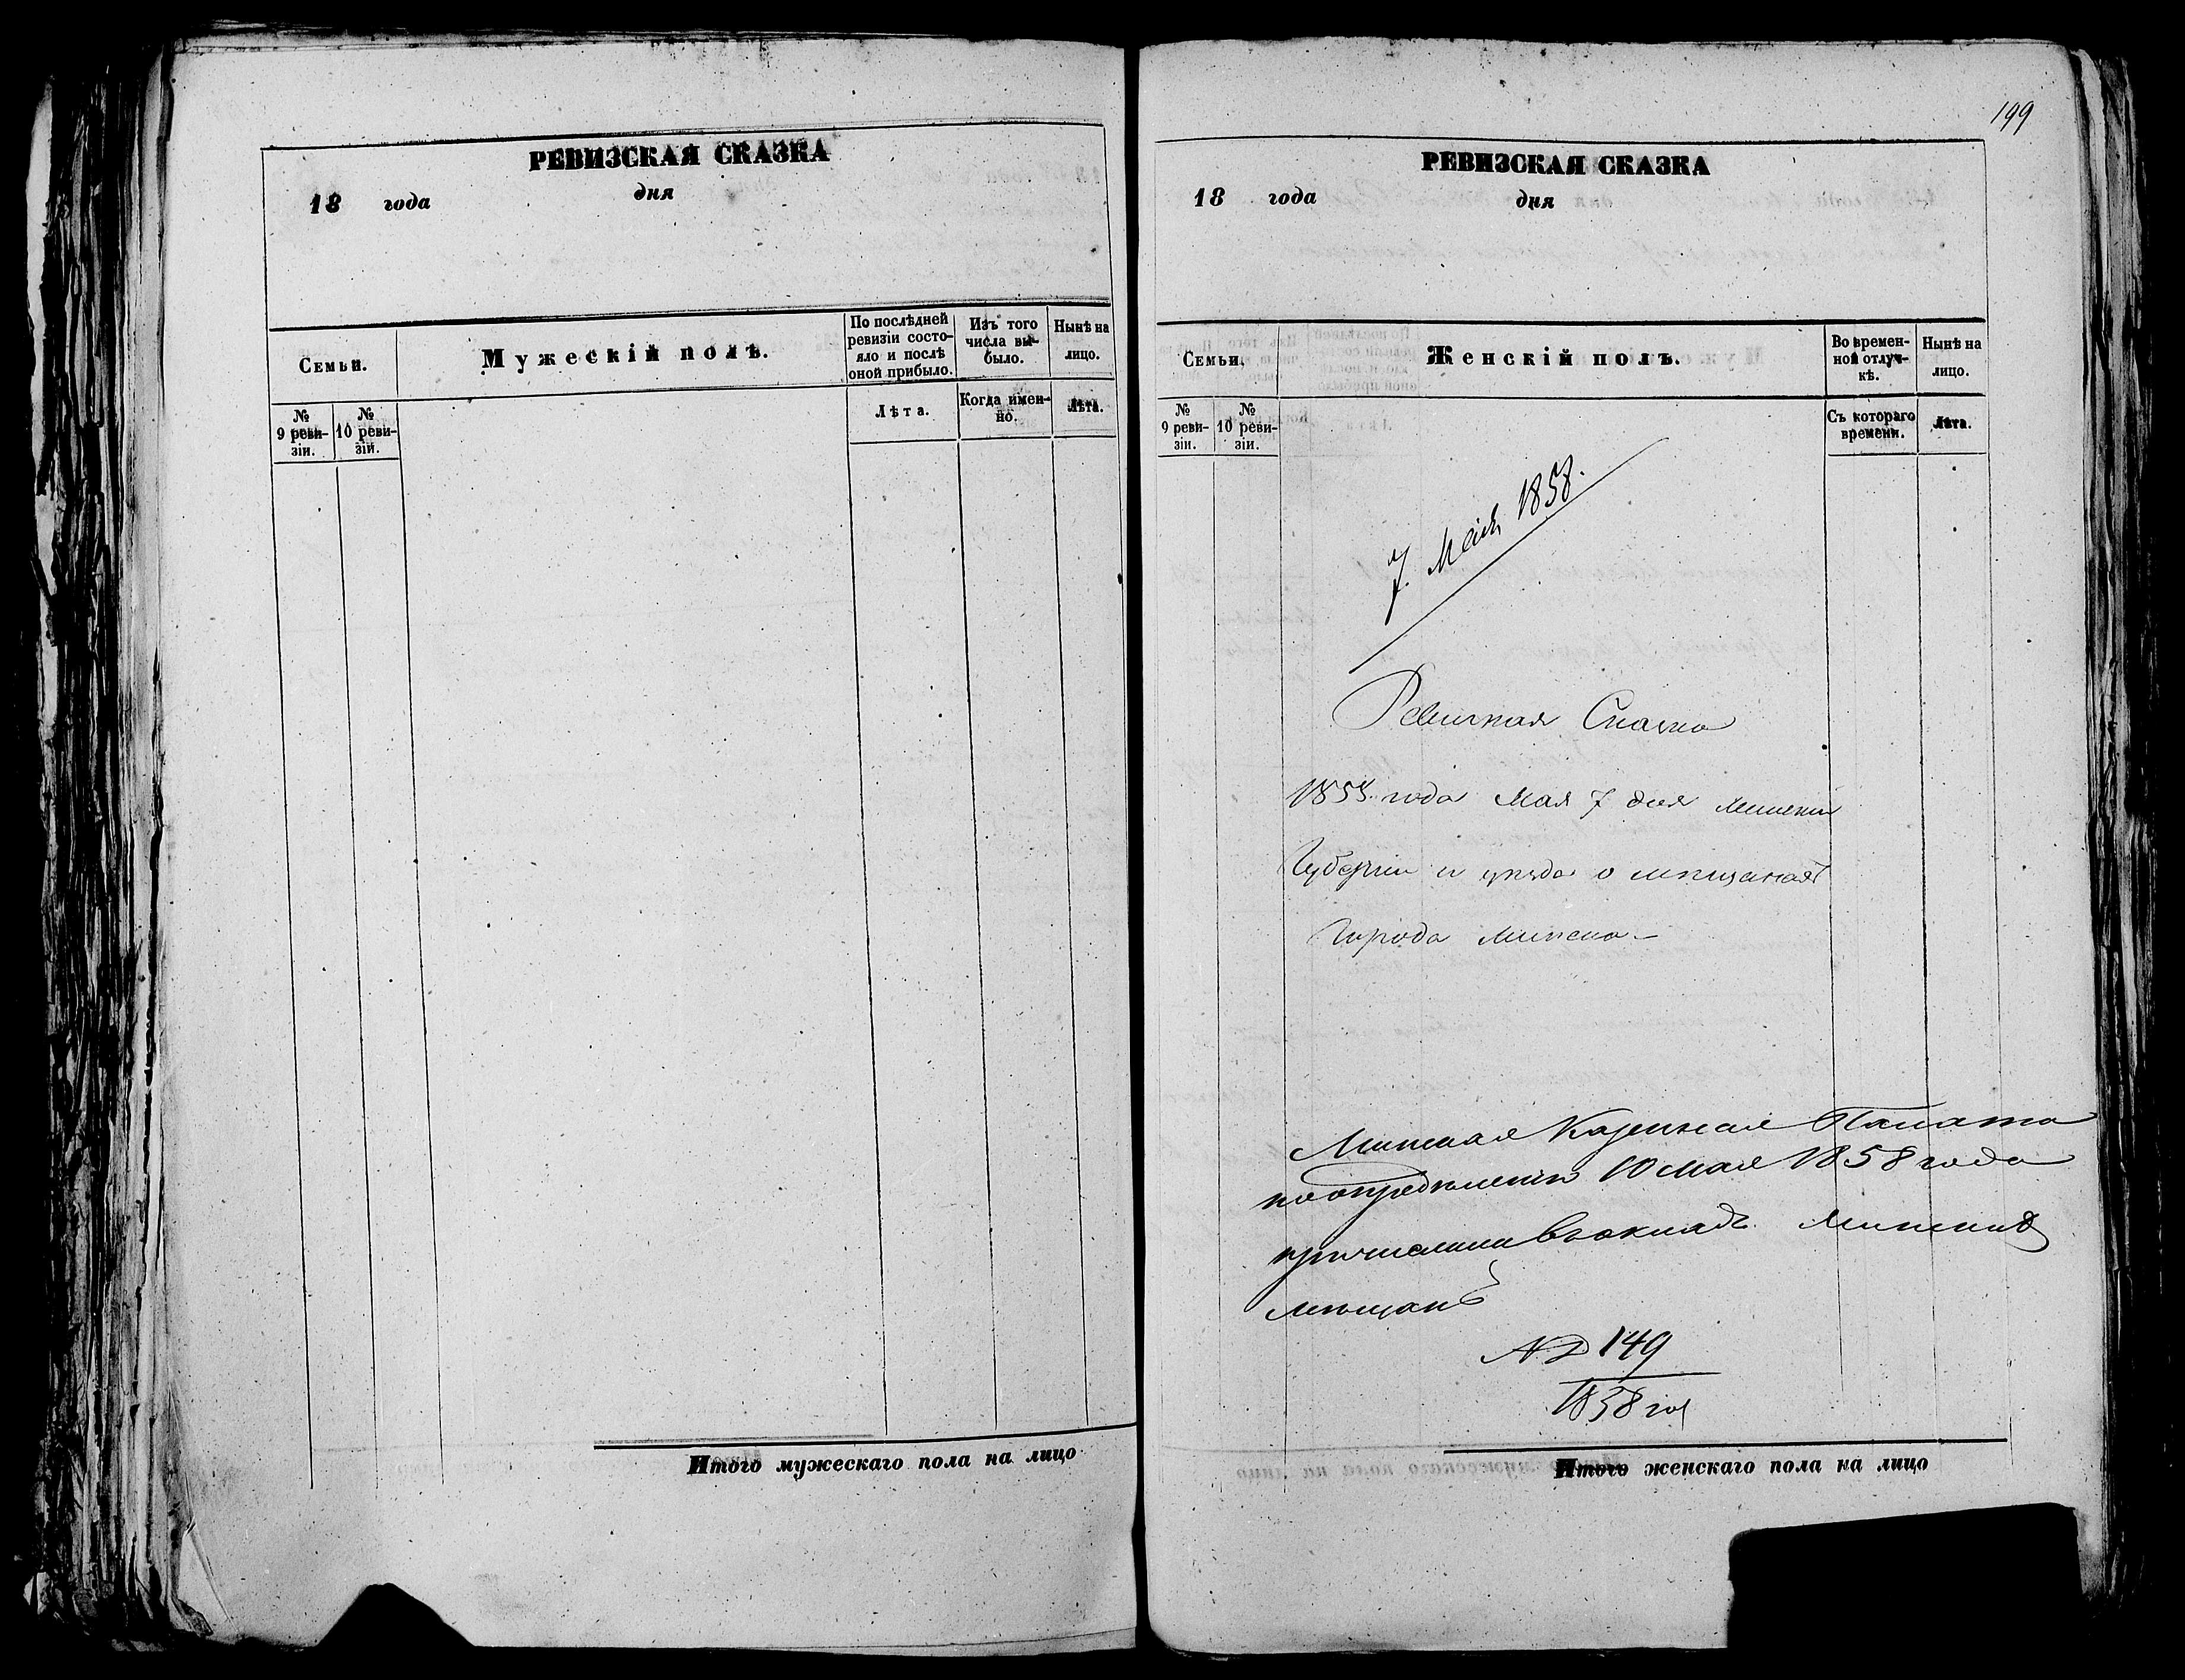 РЕВИЗСКАЯ СКАЗКА
18 года дня
Семьи.
Мужескій полъ.
По послѣдней
ревизіи состо-
яло и послѣ
оной прибыло.
Изъ того
числа вы-
было.
Нынѣ на
лицо.
№
9 реви-
зіи.
№
10 реви-
зіи.
Лѣта.
Когда имен-
но.
Лѣта.
Итого мужескаго пола на лицо
199
РЕВИЗСКАЯ СКАЗКА
18 года дня
Семьи.
Женскій полъ.
Во времен-
ной отлуч-
кѣ.
Нынѣ на
лицо.
№
9 реви-
зіи.
№
10 реви-
зіи.
Съ котораго
времени.
Лѣта.
7. Мая 1858.
Ревизская Сказка
1858 года Мая 7 дня Минской
Губерніи и уѣзда о мѣщанахъ
Города Минска
Минская Казенная Палата
по опредѣленію 10 Мая 1858 года
причислила въ окладъ Минскихъ
мѣщанъ
№ 149
1858 год
Итого женскаго пола на лицо